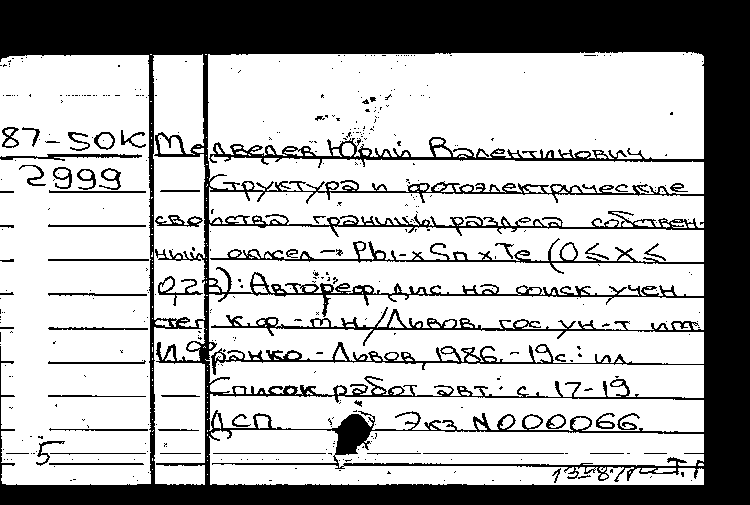 87-50К Медведев, Юрий Валентинович.
2999 Структура и фотоэлектрические
свойства границы раздела собствен-
ный окисел - Pb1-xSnxTe (0≤x≤
0,23): Автореф. дис. на соиск. учен.
степ. к.ф.-м.н. / Львов. гос. ун-т им.
И.Франко. - Львов, 1986. - 19с.: ил.
Список работ авт.: с. 17-19.
ДСП. Экз N000066.
5